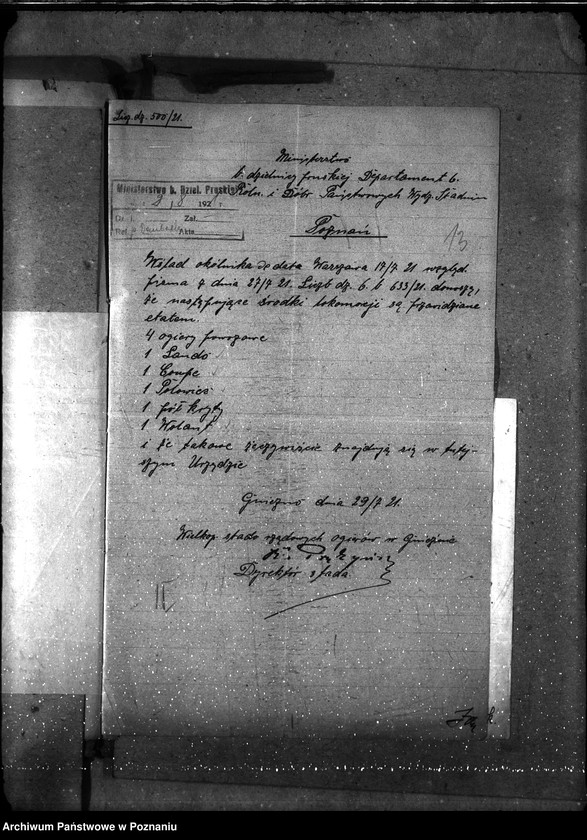 Liczb. dz. 500/21.
Ministerstwo
b. dzielnicy pruskiej Departament b.
Roln. i Dóbr Państwowych Wydz. Stadnin
Ministerstwo b. Dziel. Pruskiej
8 192
Zał.
Ref. Akta
Poznań
13
Wślad okólnika de data Warszawa 17/7 21 względ.
pisma z dnia 27/7 21. Liczb dz. 6. b 633/21. donoszę,
że następujące środki lokomocji są przewidziane
etatem.
4 ogiery powozowe
1 Lando
1 Coupe
1 Polowiec
1 pół kryty
1 Wolant
i że takowe rzeczywiście znajdują się w tutej-
szym Urzędzie
Gniezno dnia 29/7 21.
Wielkop. stado rządowych ogierów w Gnieźnie
Dyrektor stada
II
Archiwum Państwowe w Poznaniu